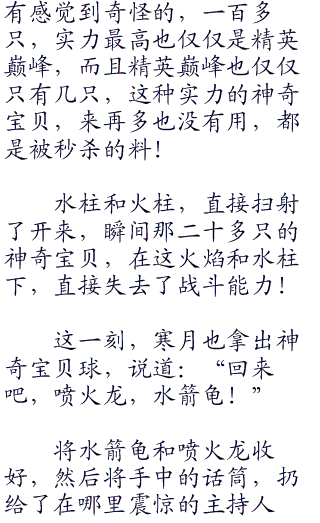 有感觉到奇怪的，一百多
只，实力最高也仅仅是精英
巅峰，而且精英巅峰也仅仅
只有几只，这种实力的神奇
宝贝，来再多也没有用，都
是被秒杀的料！
水柱和火柱，直接扫射
了开来，瞬间那二十多只的
神奇宝贝，在这火焰和水柱
下，直接失去了战斗能力！
这一刻，寒月也拿出神
奇宝贝球，说道：“回来
吧，喷火龙，水箭龟！”
将水箭龟和喷火龙收
好，然后将手中的话筒，扔
给了在哪里震惊的主持人